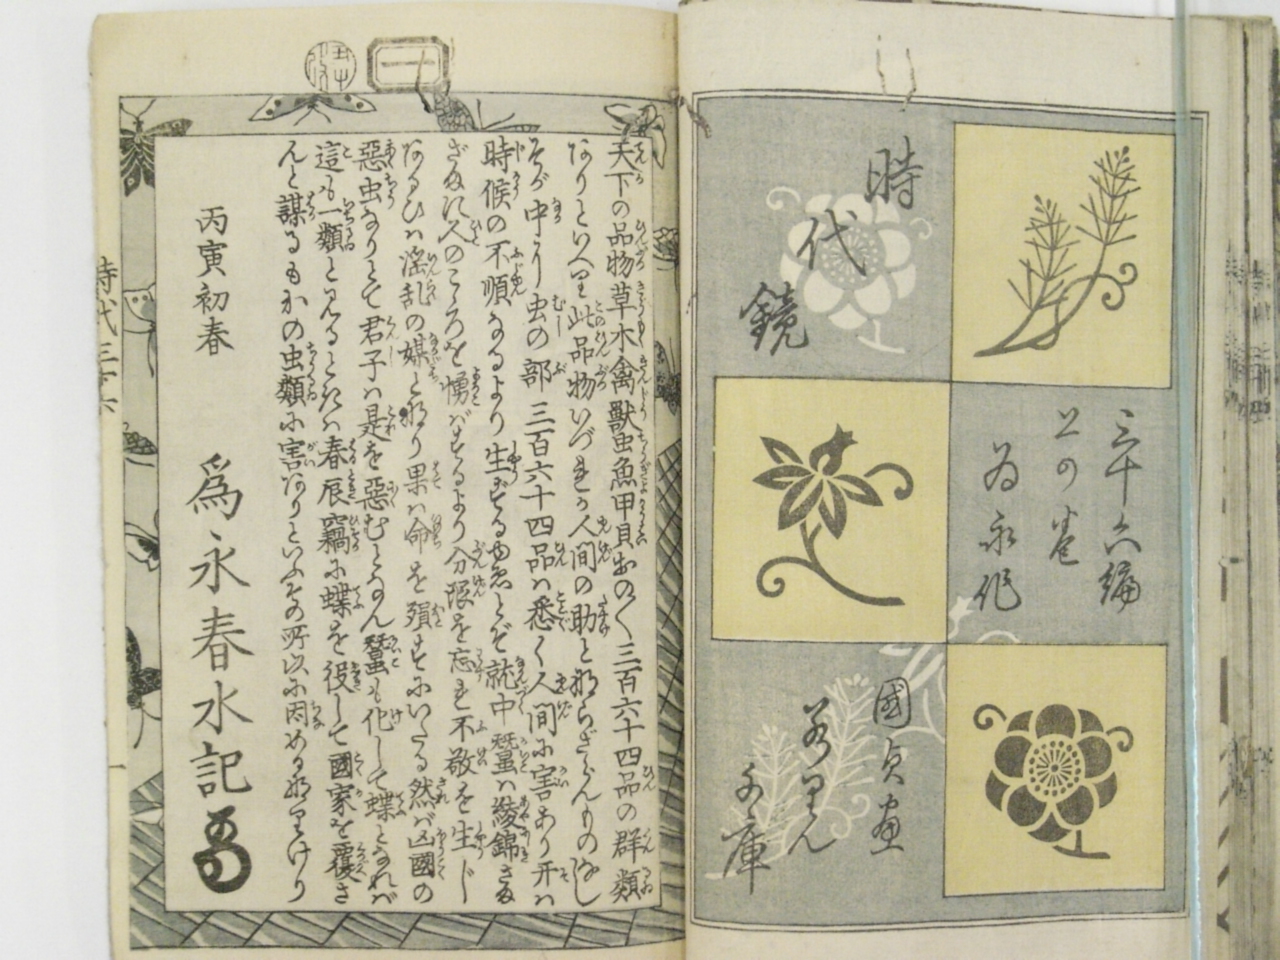 時代鏡
三十六編
上の巻
為永作
國貞画
若りん
文庫
天下の品物草木禽獣虫魚甲貝おの〱三百六十四品の群類
なりといへり此品物いづれか人間の助と那らざらんものなし
そが中より虫の部三百六十四品ハ悉く人間に害あり开ハ
時候の不順なるより生ずるゆゑとぞ就中蠶ハ綾錦さな
ざね人のこゝろを惰バするより分限を忘れ不敬を生じ
なるひハ淫乱の媒と那り果ハ命を殞すにいたる然バ凶國の
惡虫なりとて君子ハ是を惡むとなん蠶も化して蝶となれバ
這も一類と見るときハ春辰竊に蝶を役して國家を覆さ
んと謀るもかの虫類に害ありといふその所以に因める那るけり
丙寅初春
爲永春水記
時代三十六
一